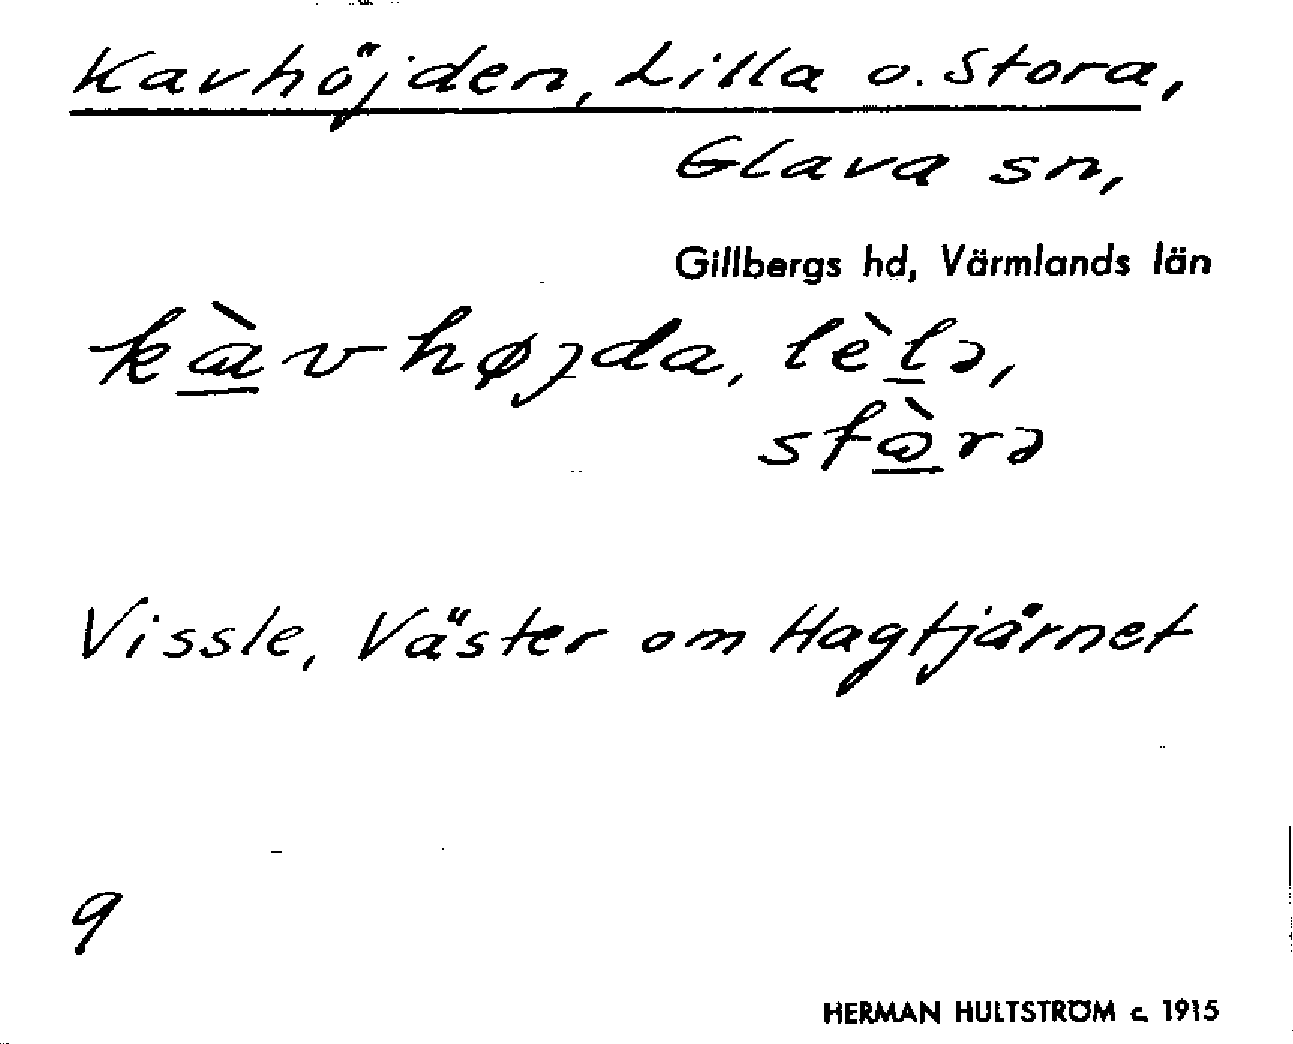 Kavhöjden, Lilla o. Stora,
Glava sn,
Gillbergs hd, Värmlands län
kàvhøjda, lèlə,
stòrə
Vissle, Väster om Hagtjärnet
9
HERMAN HULTSTRÖM c. 1915